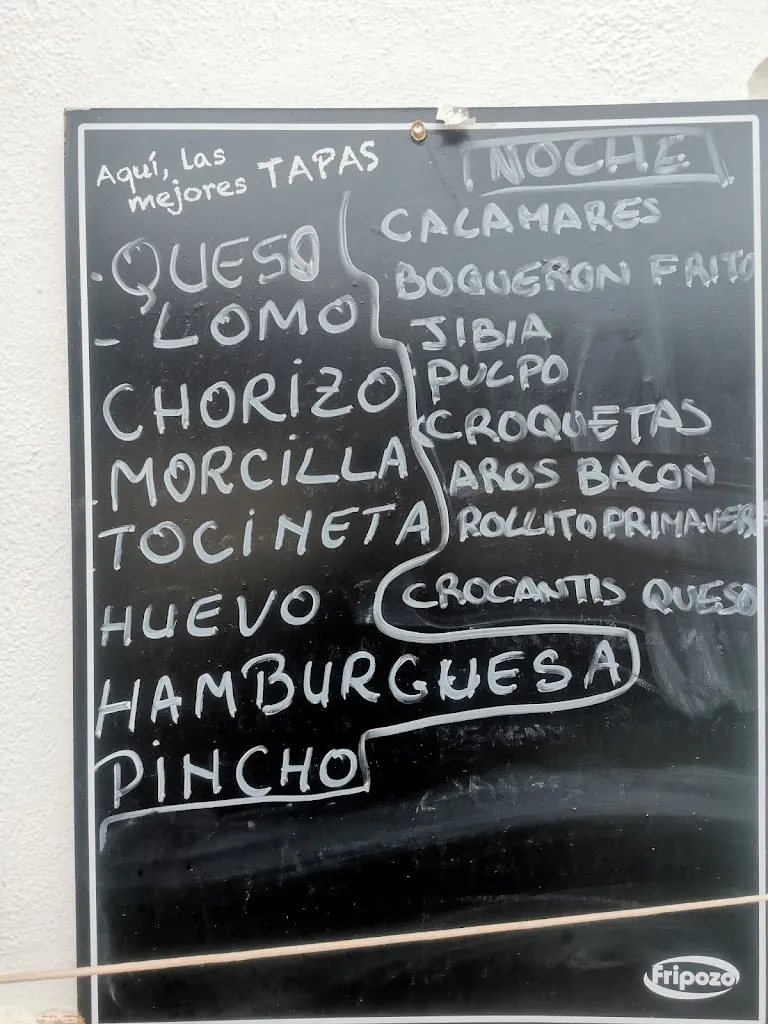 Aquí, las
mejores TAPAS
- QUESO
- LOMO
CHORIZO
MORCILLA
TOCINETA
HUEVO
HAMBURGUESA
PINCHO
NOCHE
CALAMARES
BOQUERON FRITO
JIBIA
PULPO
CROQUETAS
AROS BACON
ROLLITO PRIMAVERA
CROCANTIS QUESO
Fripozo